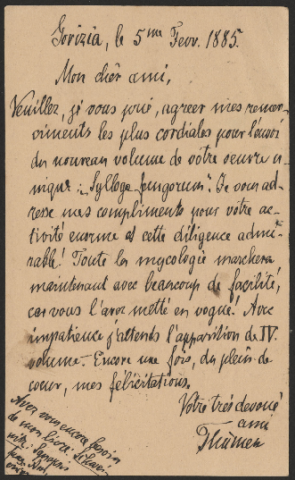 Gorizia, le 5me Fevr. 1885.
Mon chèr ami,
Veuillez, je vous prie, agreer mes remer-
ciments les plus cordiales pour l'envoi
du nouveau volume de votre oeuvre u-
nique: „Sylloge fungorum". Je vous ad-
resse mes compliments pour vôtre ac-
tivité enorme et cette diligence admi-
rable! Toute la mycologie marchera
maintenant avec beaucoup de facilité,
car vous l'avez metté en vogue! Avec
impatience j'attends l'apparition de IV.
volume. Encore une fois, du plein de
coeur, mes félicitations.
Votre très devoué
ami
Thümen
Avez vous encore besoin
de mon livre